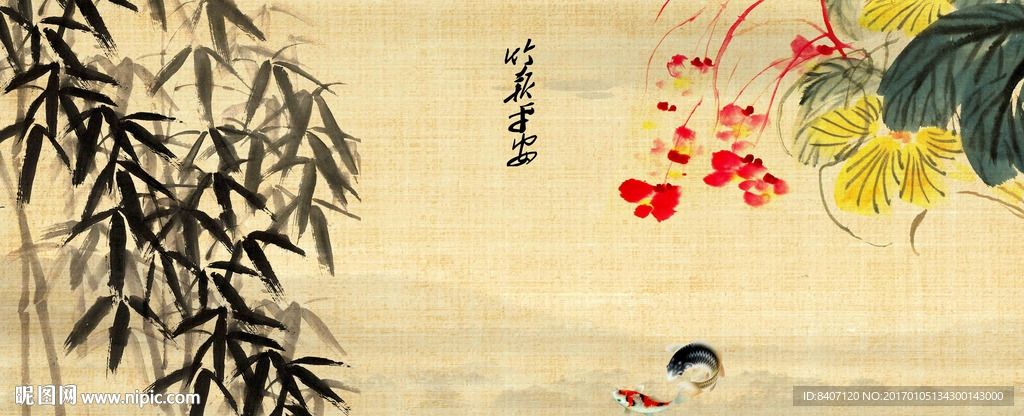 竹报平安
昵图网 www.nipic.com
ID:8407120 NO:20170105134300143000